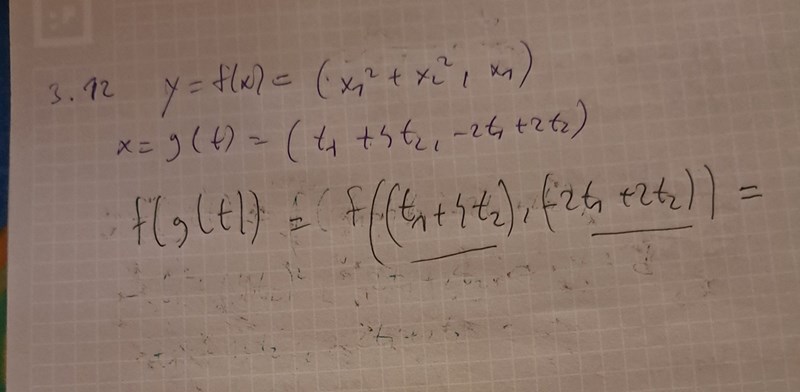 3.12 y = f(x) = (x₁² + x₂², x₁)
x = g(t) = (t₁ + 4t₂, -2t₁ + 2t₂)
f(g(t)) = f((t₁ + 4t₂), (-2t₁ + 2t₂)) =